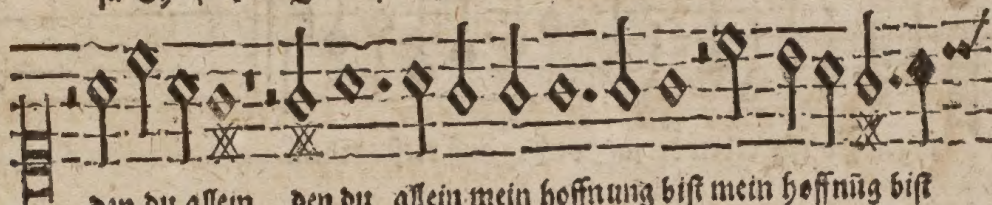 den du allein den du allein mein hoffnung bist mein hoffnūg bist